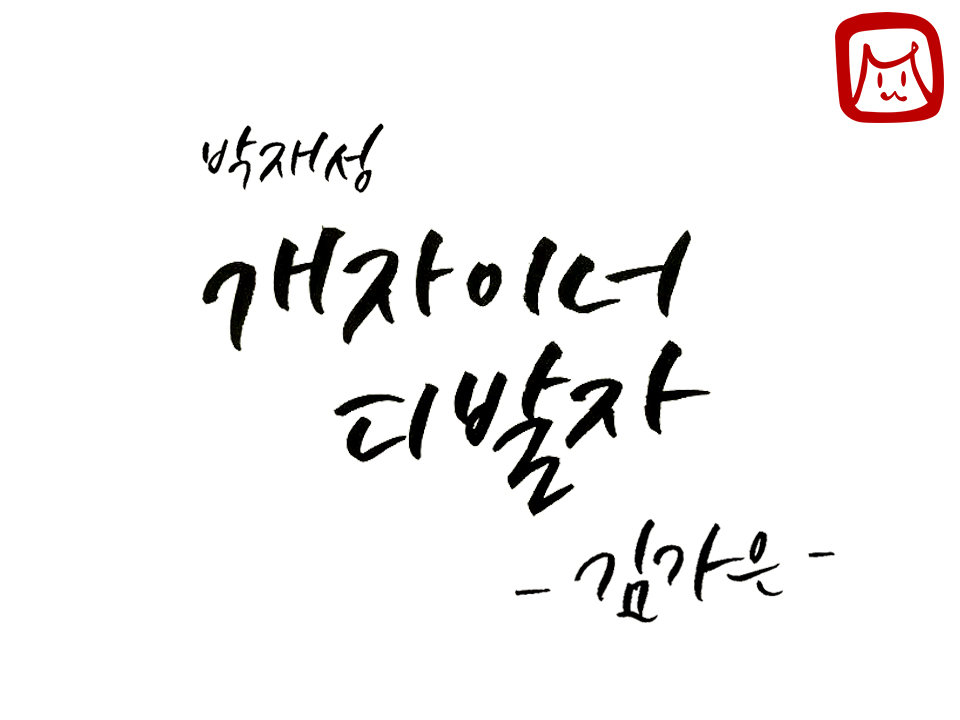 박재성
개자이너
디발자
- 김가은 -